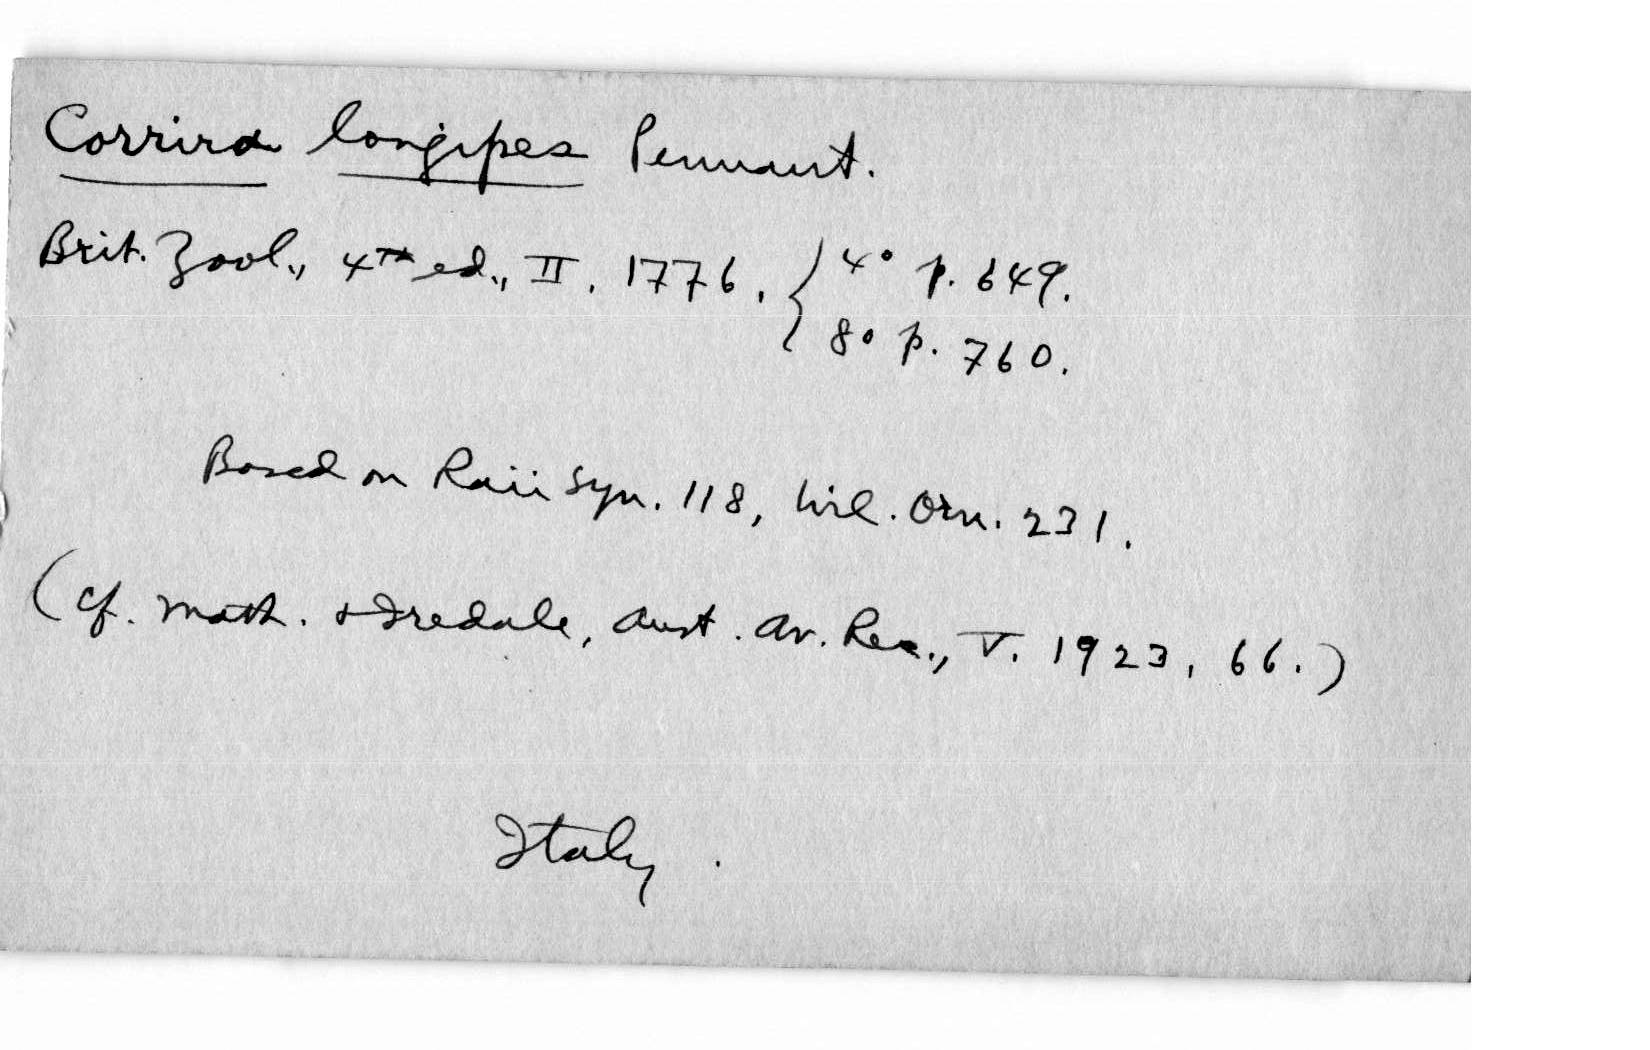 Corrira longipes Pennant.
Brit. Zool., 4th ed., II. 1776. { 4° p. 649.
8° p. 760.
Based on Raii Syn. 118, Wil. Orn. 231.
(cf. Math. & Iredale, Aust. Av. Rec., V. 1923, 66.)
Italy.